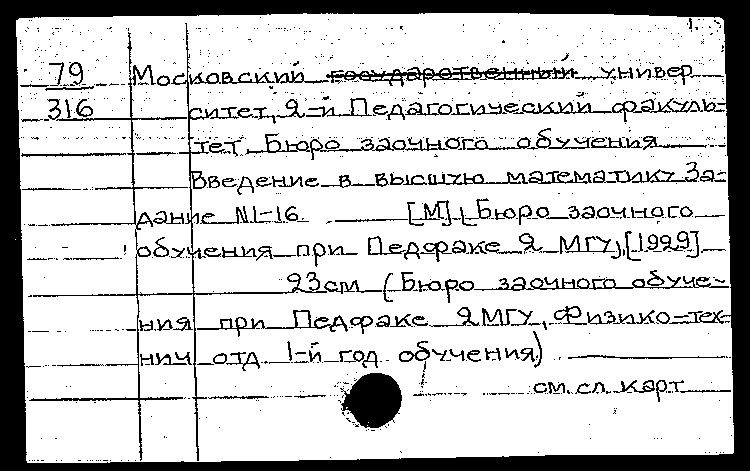 1.
79 Московский государственный универ
316 ситет, 2-й Педагогический факуль-
тет. Бюро заочного обучения
Введение в высшую математику За-
дание N1-16. [М], Бюро заочного
обучения при Педфаке 2 МГУ, [1929]
23см (Бюро заочного обуче-
ния при Педфаке 2МГУ, Физико-тех-
нич отд. 1-й год обучения)
см. сл. карт